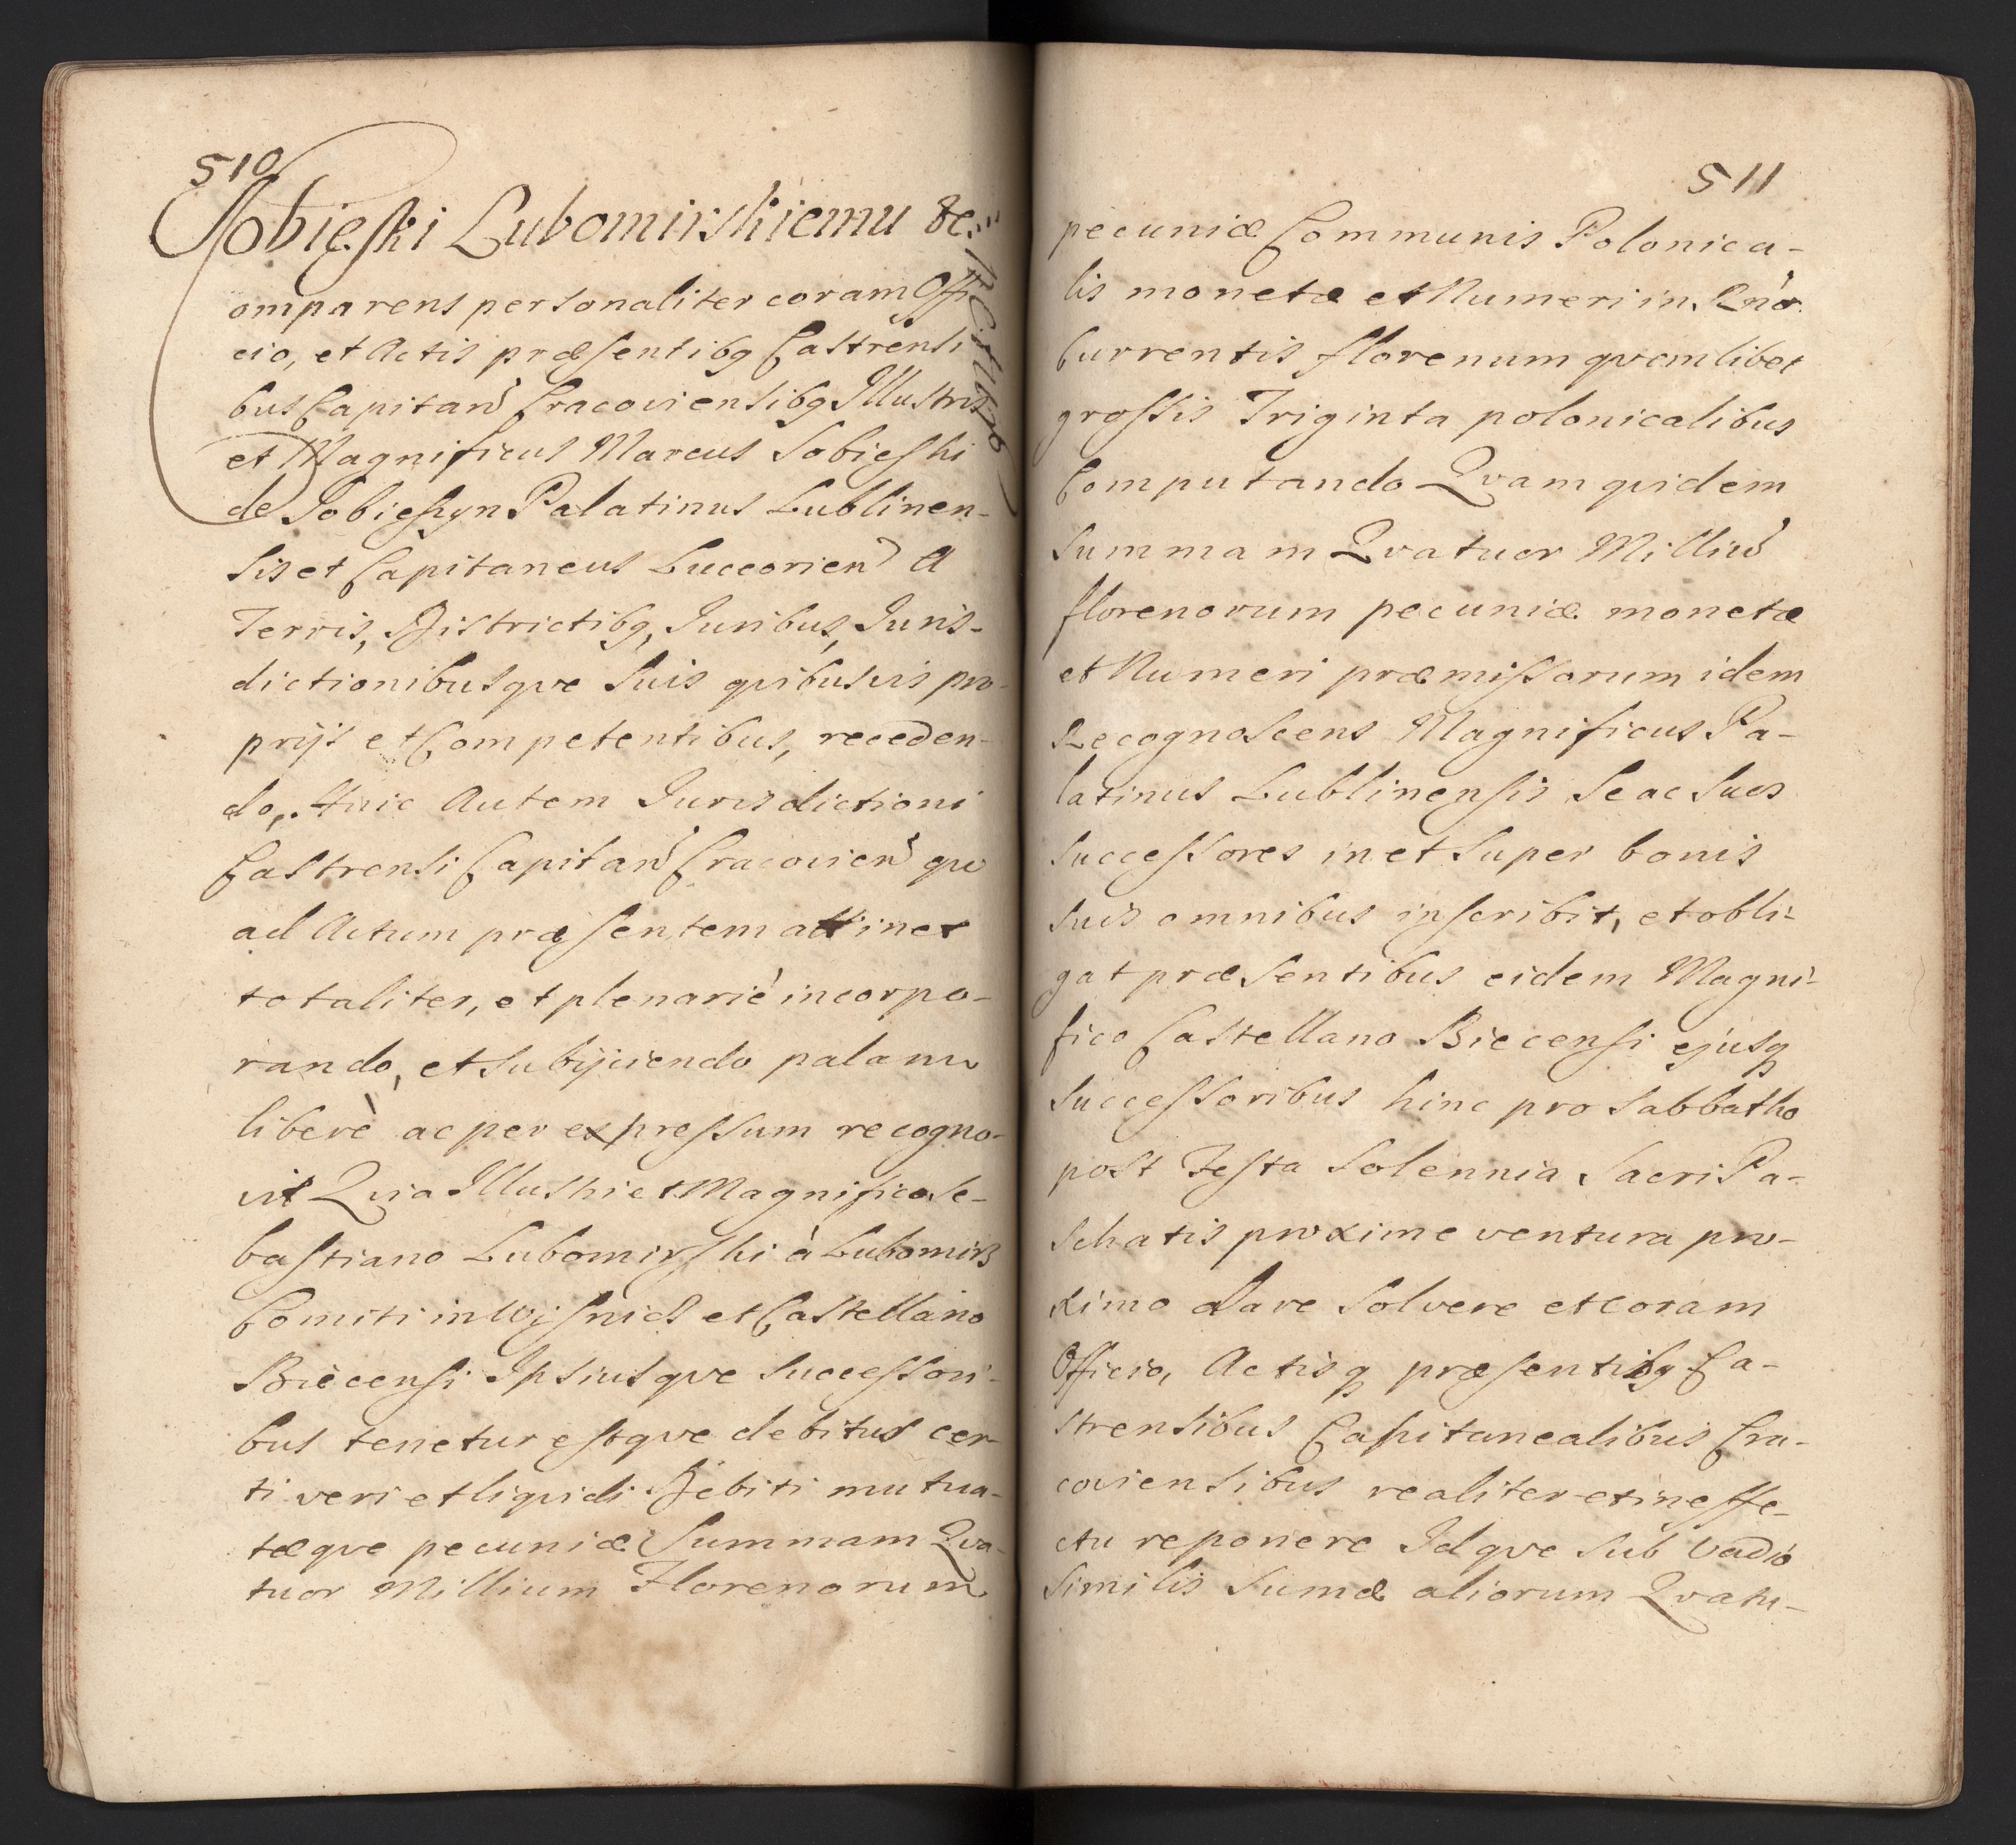 510
Sobieski Lubomirskiemu &c.
omparens personaliter coram Offi
cio, et Actis præsentibq Castrensi
bus Capitan Cracoviensibq Illustris
et Magnificus Marcus Sobieski
de Sobieszyn Palatinus Lublinen-
sis et Capitaneus Luceorien A
Terris, Districtibq, Juribus, Juris-
dictionibusque suis quibusvis pro-
prijs et Competentibus, receden-
do, Huic Autem Jurisdictioni
Castrensi Capitan Cracovien qu
ad Actum præsentem attinet
totaliter, et plenariè incorpo-
rando, et subijciendo palam
liberè ac per expressum recogno-
vit Quia Illustri et Magnifico Se-
bastiano Lubomirski à Lubomirz
Comiti in Wisnicz et Castellano
Biecensi Ipsiusque Successori-
bus tenetur estque debitus cer-
ti veri et liquidi Debiti mutua-
tæque pecuniæ Summam Qua-
tuor Millium Florenorum
511
pecuniæ Communis Polonica-
lis monetæ et Numeri in Rño
Currentis florenum quemlibet
grossis Triginta polonicalibus
Computando Quam quidem
Summam Quatuor Milliu
florenorum pecuniæ monetæ
et Numeri præmissorum idem
Recognoscens Magnificus Pa-
latinus Lublinensis Se ac Suos
Successores in et Super bonis
Suis omnibus inscribit, et obli-
gat præsentibus eidem Magni-
fico Castellano Biecensi ejusq
Successoribus hinc pro Sabbatho
post Festa Solennia Sacri Pa-
schatis proxime ventura pro-
ximo dare Solvere et coram
Officio, Actisq præsentibq Ca-
strensibus Capitanealibus Cra-
coviensibus realiter et in effe-
ctu reponere Idque Sub Vadio
Similis Sumæ aliorum Quatu-